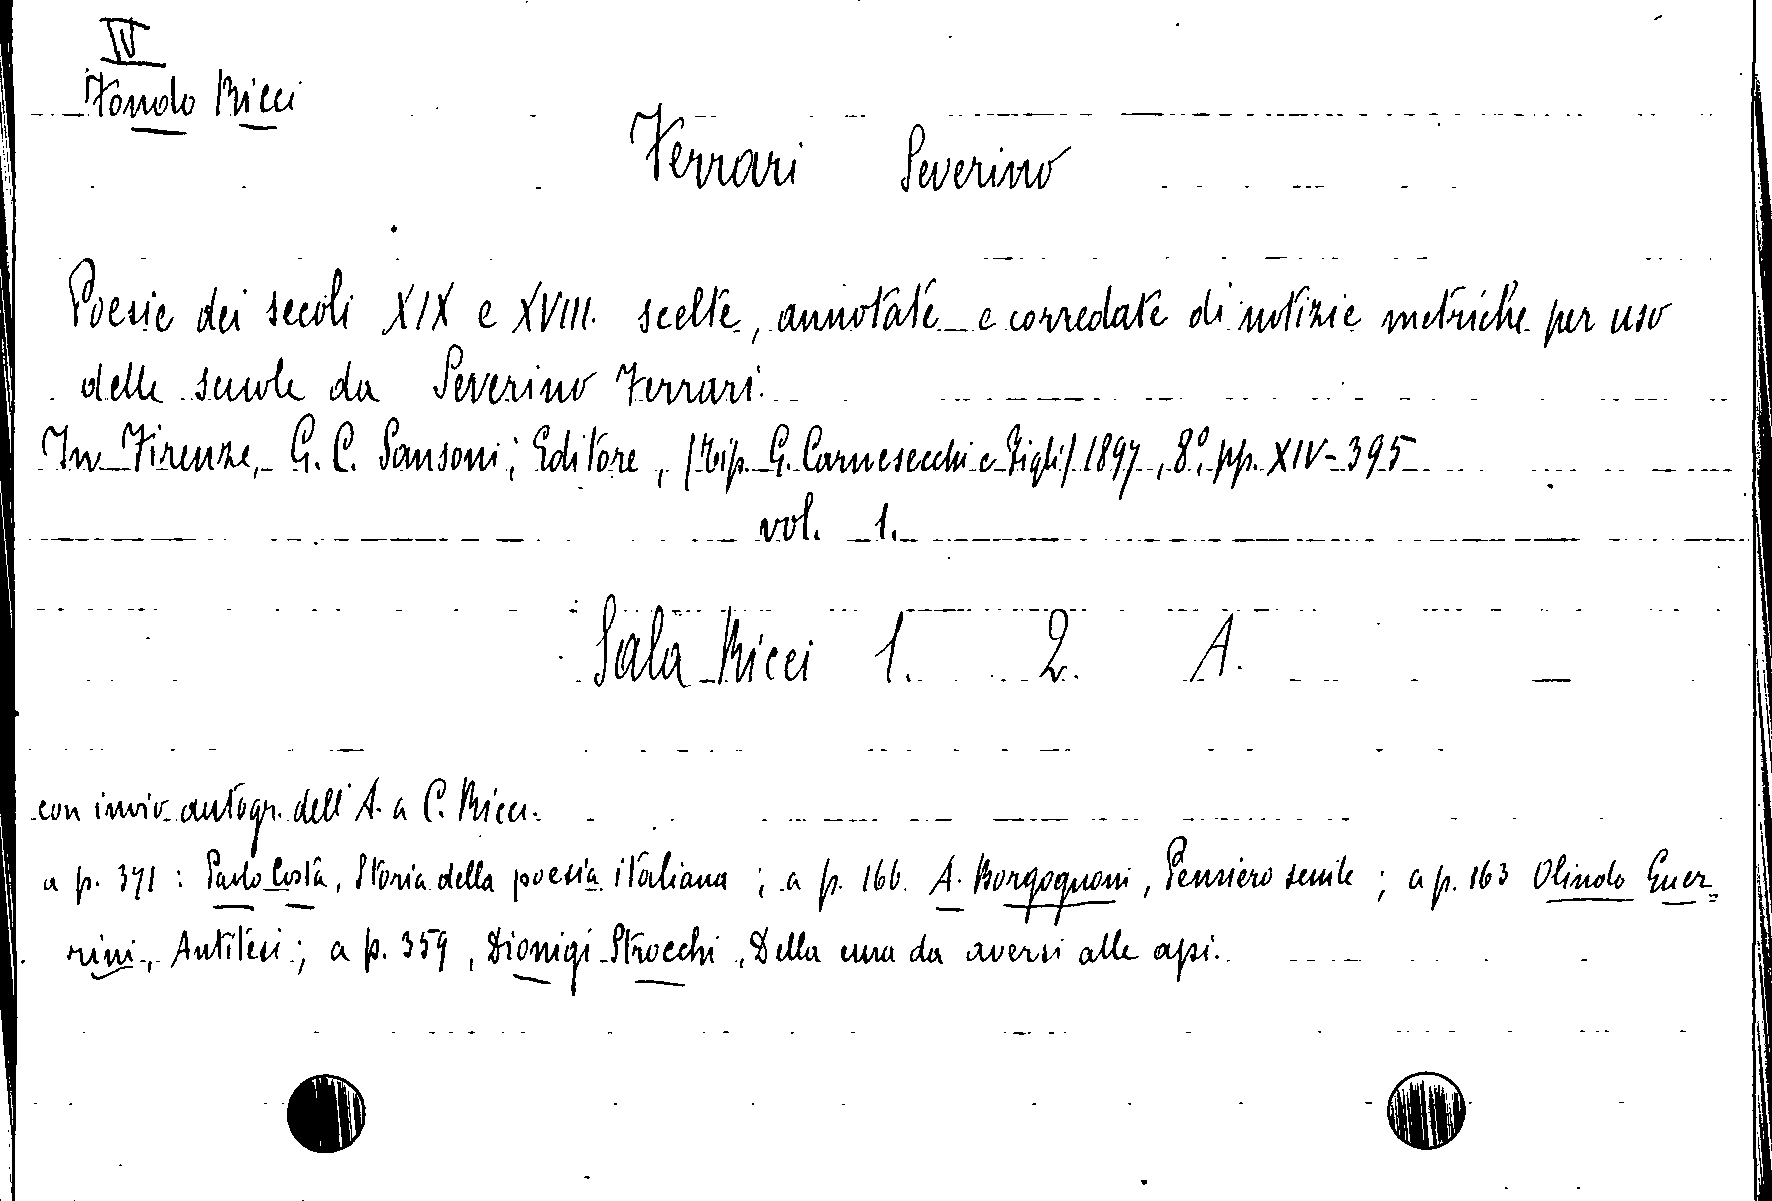 IV
Fondo Ricci
Ferrari Severino
Poesie dei secoli XIX e XVIII. scelte, annotate e corredate di notizie metriche per uso
delle scuole da Severino Ferrari.
In Firenze, G. C. Sansoni, Editore, (Tip. G. Carnesecchi e Figli) 1897, 8°, pp. XIV-395
vol. 1.
Sala Ricci 1. 2. A.
con invio autogr. dell'A. a C. Ricci.
a p. 371 : Paolo Costa, Storia della poesia italiana ; a p. 166. A. Borgognoni, Pensiero senile ; a p. 163 Olindo Guer=
rini, Antitesi ; a p. 359, Dionigi Strocchi, Della cura da aversi alle api.